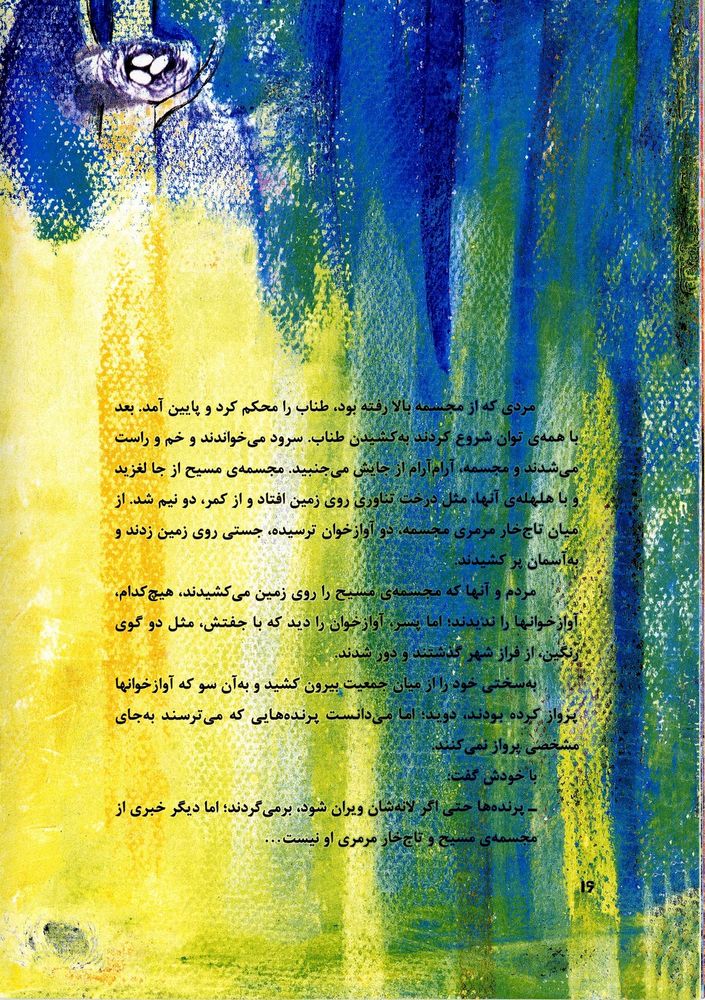 مردی که از مجسمه بالا رفته بود، طناب را محکم کرد و پایین آمد. بعد
با همه‌ی توان شروع کردند به‌کشیدن طناب. سرود می‌خواندند و خم و راست
می‌شدند و مجسمه، آرام‌آرام از جایش می‌جنبید. مجسمه‌ی مسیح از جا لغزید
و با هلهله‌ی آنها، مثل درخت تناوری روی زمین افتاد و از کمر، دو نیم شد. از
میان تاج‌خار مرمری مجسمه، دو آوازخوان ترسیده، جستی روی زمین زدند و
به‌آسمان پر کشیدند.
مردم و آنها که مجسمه‌ی مسیح را روی زمین می‌کشیدند، هیچ‌کدام،
آوازخوانها را ندیدند؛ اما پسر، آوازخوان را دید که با جفتش، مثل دو گوی
رنگین، از فراز شهر گذشتند و دور شدند.
به‌سختی خود را از میان جمعیت بیرون کشید و به‌آن سو که آوازخوانها
پرواز کرده بودند، دوید؛ اما می‌دانست پرنده‌هایی که می‌ترسند به‌جای
مشخصی پرواز نمی‌کنند.
با خودش گفت:
ـ پرنده‌ها حتی اگر لانه‌شان ویران شود، برمی‌گردند؛ اما دیگر خبری از
مجسمه‌ی مسیح و تاج‌خار مرمری او نیست...
۱۶